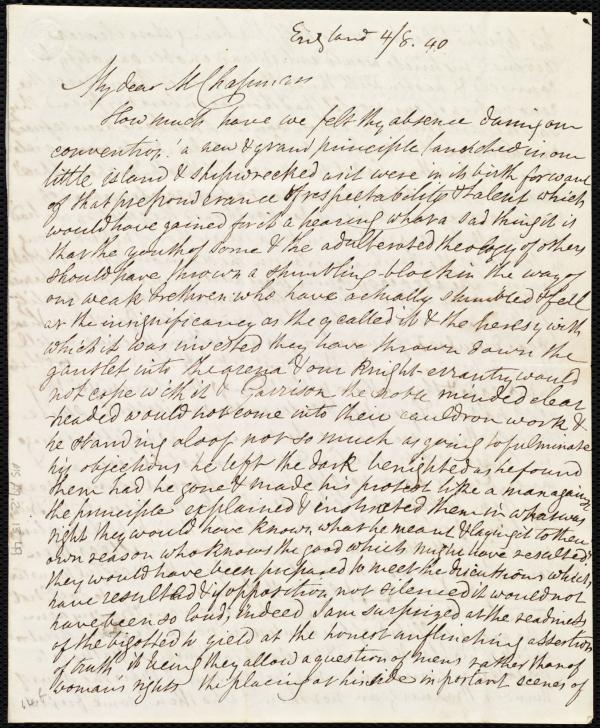 England 4/8. 40
My dear M Chapman
How much have we felt thy absence during our
convention! a new & grand principle launched in our
little island & shipwrecked as it were in its birth for want
of that preponderance of respectability & talent which
would have gained for it a hearing what a sad thing it is
that the youth of some & the adulterated theology of others
should have thrown a stumbling-block in the way of
our weak brethren who have actually stumbled & fell
at the insignificancy as they called it & the heresy with
which it was invested they have thrown down the
gauntlet into the arena & our Knight-errantry would
not cope with it & Garrison the noble minded clear
-headed would not come into their cauldron work &
he standing aloof not so much as going to fulminate
his objections he left the dark benighted as he found
them had he gone & made his protest like a man against
the principle explained & instructed them in what was
right they would have known what he meant & laying it to their
own reason who knows the good which might have resulted
they would have been prepared to meet the discussions which
have resulted & if opposition not silenced it would not
have been so loud, indeed I am surprized at the readiness
of the bigotted to yield at the honest unflinching assertion
of truth it being they allow a question of men's rather than of
woman's rights the placing at his side in portant scenes of